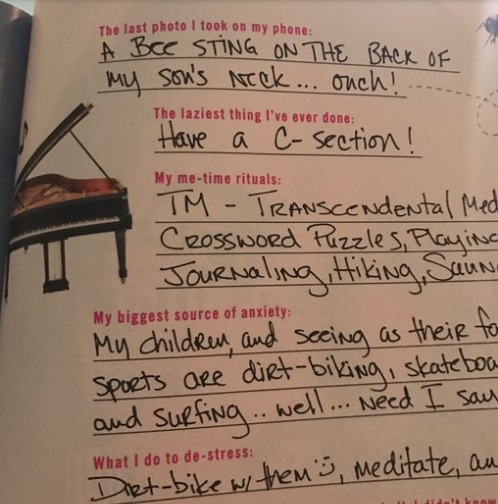 The last photo I took on my phone:
A BEE STING ON THE BACK OF
my son's neck... ouch!
The laziest thing I've ever done:
Have a C-section!
My me-time rituals:
TM - Transcendental Med
Crossword Puzzles, Playing
Journaling, Hiking, Saun
My biggest source of anxiety:
My children, and seeing as their fa
sports are dirt-biking, skateboa
and surfing.. well... need I say
What I do to de-stress:
Dirt-bike w/ them, meditate, an
I didn't know